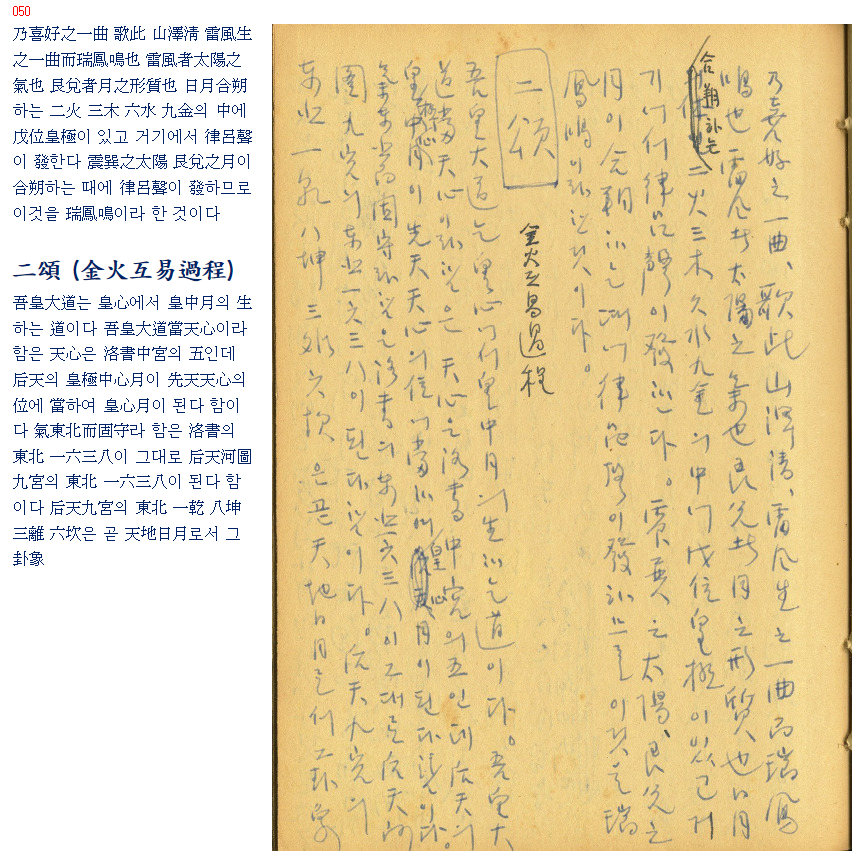 050
乃喜好之一曲 歌此 山澤淸 雷風生
之一曲而瑞鳳鳴也 雷風者太陽之
氣也 艮兌者月之形質也 日月合朔
하는 二火 三木 六水 九金의 中에
戊位皇極이 있고 거기에서 律呂聲
이 發한다 震巽之太陽 艮兌之月이
合朔하는 때에 律呂聲이 發하므로
이것을 瑞鳳鳴이라 한 것이다
二頌 (金火互易過程)
吾皇大道는 皇心에서 皇中月의 生
하는 道이다 吾皇大道當天心이라
함은 天心은 洛書中宮의 五인데
后天의 皇極中心月이 先天天心의
位에 當하여 皇心月이 된다 함이
다 氣東北而固守라 함은 洛書의
東北 一六三八이 그대로 后天河圖
九宮의 東北 一六三八이 된다 함
이다 后天九宮의 東北 一乾 八坤
三離 六坎은 곧 天地日月로서 그
卦象
乃喜好之一曲、歌此山澤淸、雷風生之一曲而瑞鳳
鳴也 雷風者太陽之氣也 艮兌者月之形質也 日月
合朔하는 二火三木六水九金의 中에 戊位皇極이 있고 거
기에서 律呂聲이 發한다。震巽之太陽、艮兌之
月이 合朔하는 때에 律呂聲이 發하므로 이것을 瑞
鳳鳴이라 한 것이다。
二頌
金火互易過程
吾皇大道는 皇心에서 皇中月의 生하는 道이다。吾皇大
道當天心이라 함은 天心은 洛書中宮의 五인데 后天의
皇極中心月이 先天天心의 位에 當하여 皇心月이 된다 함이다。
氣東北而固守라 함은 洛書의 東北 一六三八이 그대로 后天河
圖九宮의 東北 一六三八이 된다 함이다。后天九宮의
東北 一乾八坤三離六坎은 곧 天地日月로서 그 卦象